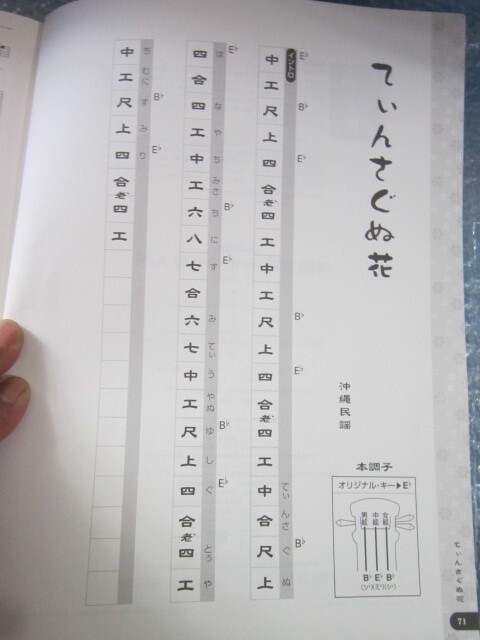 てぃんさぐぬ花
沖縄民謡
本調子
オリジナル・キー▶E♭
男絃 中絃 女絃
B♭ E♭ B♭
(シ♭)(ミ♭)(シ♭)
イントロ
E♭ B♭ E♭ B♭ E♭ B♭
てぃ んさ ぐ ぬ
中工尺上四合老四工中工尺上四合老四工中合尺上
E♭ B♭ E♭ B♭ E♭
は な や ち みさ ち に す み てぃ う やぬ ゆ し ぐ とぅ や
四合四工中工六八七合六七中工尺上四合老四工
B♭ E♭
ち むに す み り
中工尺上四合老四工
てぃんさぐぬ花
71